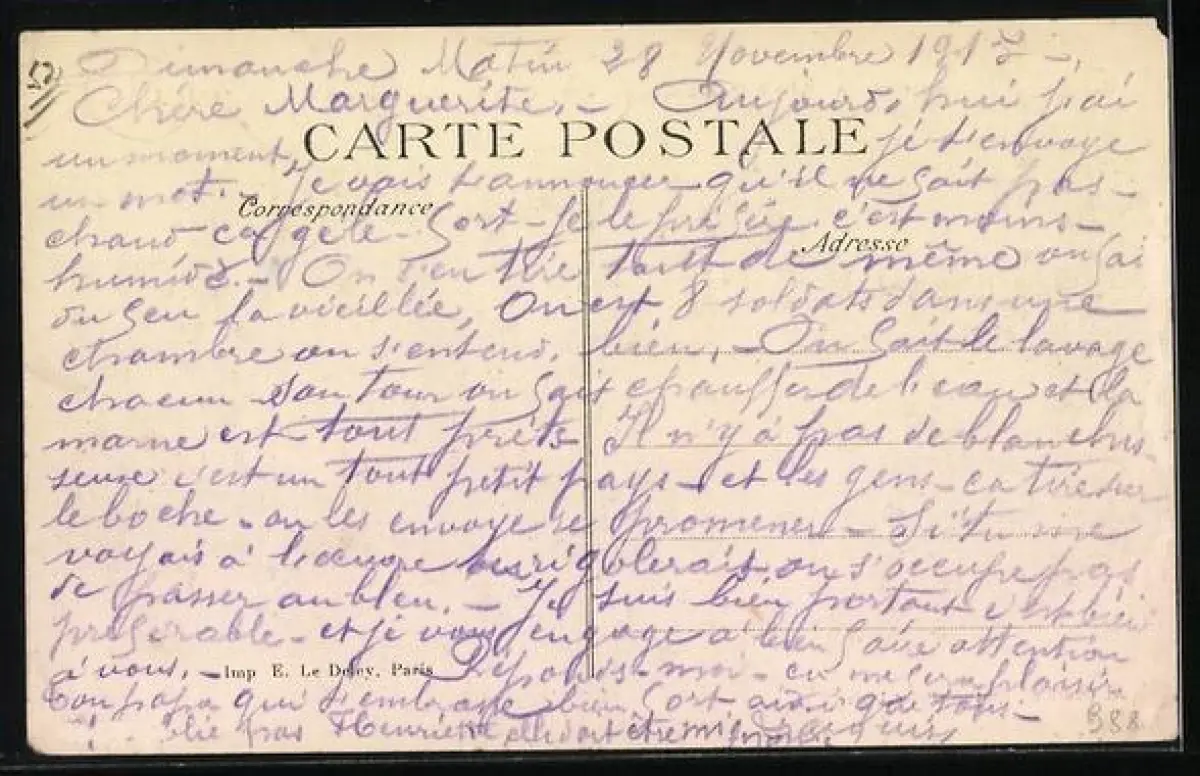 Dimanche Matin 28 Novembre 191
Chère Marguerite, - Aujourd,hui j'ai
CARTE POSTALE
un moment, je t'envoye
un mot. - Je vais t'annoncer qu'il ne fait pas -
Correspondance
chaud ça gèle - fort - Je le préfère, c'est moins -
Adresse
humide. - On s'en tire tout de même on fai
du feu la vieillée, On est 8 soldats dans une
chambre on s'entend, bien, - On fait le lavage
chacun son tour on fait chauffer de l'eau et la
marne est tout prête Il n'y à pas de blanchis-
seuse c'est un tout petit pays - et les gens - ca tire sur
le boche - on les envoye se promener - Si tu me
voyais à l'œuvre tu rigolerais, on s'occupe pas
de passer au bleu. - Je suis bien portant c'est bien
préférable - et je vous engage à bien faire attention
à vous, - Répons-moi - ca me fera plaisir
Imp E. Le Deley, Paris
Ton papa qui t'embrasse bien fort
pas Henriette elle doit être
988